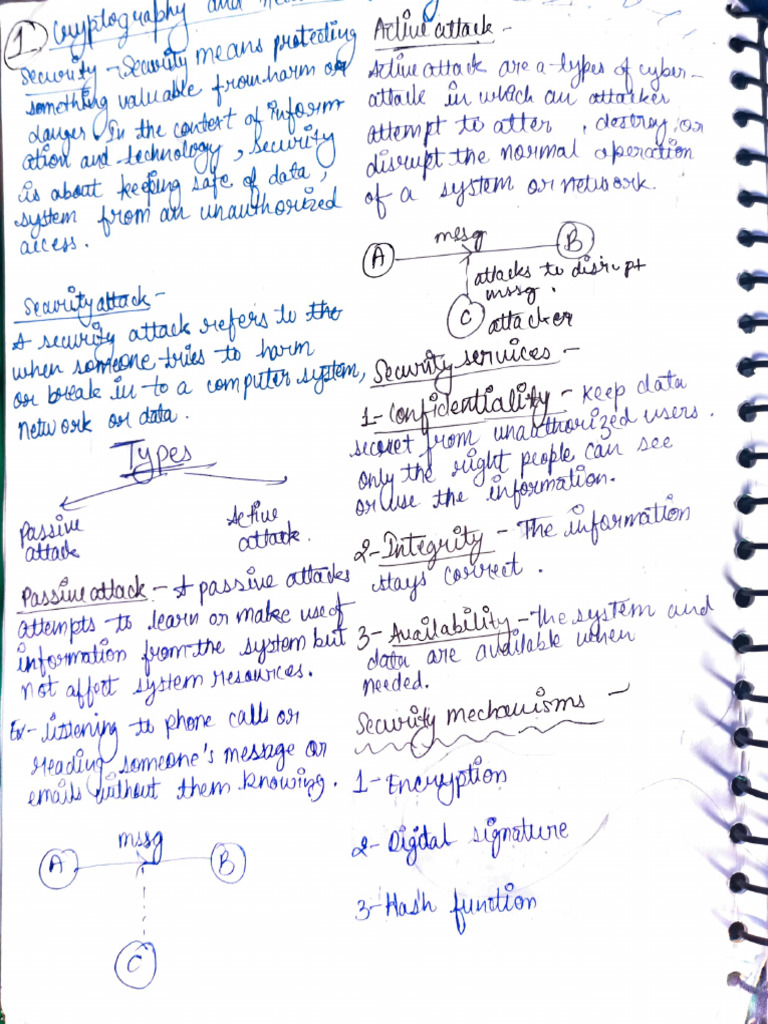 1. Cryptography and
Security - Security means protecting
something valuable from harm or
danger. In the context of inform
ation and technology, security
is about keeping safe of data,
system from an unauthorized
access.
Security attack -
A security attack refers to the
when someone tries to harm
or break in to a computer system,
network or data.
Types
Passive
attack
Active
attack.
Passive attack - A passive attacks
attempts to learn or make use of
information from the system but
not affect system resources.
Ex- listening to phone calls or
reading someone's message or
emails without them knowing.
mssg
A
B
C
Active attack -
Active attack are a types of cyber-
attack in which an attacker
attempt to alter, destroy, or
disrupt the normal operation
of a system or network.
mesg
A
B
attacks to disrupt
mssg.
C attacker
Security services -
1- Confidentiality - keep data
secret from unauthorized users.
only the right people can see
or use the information.
2- Integrity - The information
stays correct.
3- Availability - the system and
data are available when
needed.
Security mechanisms -
1- Encryption
2- Digital signature
3- Hash function